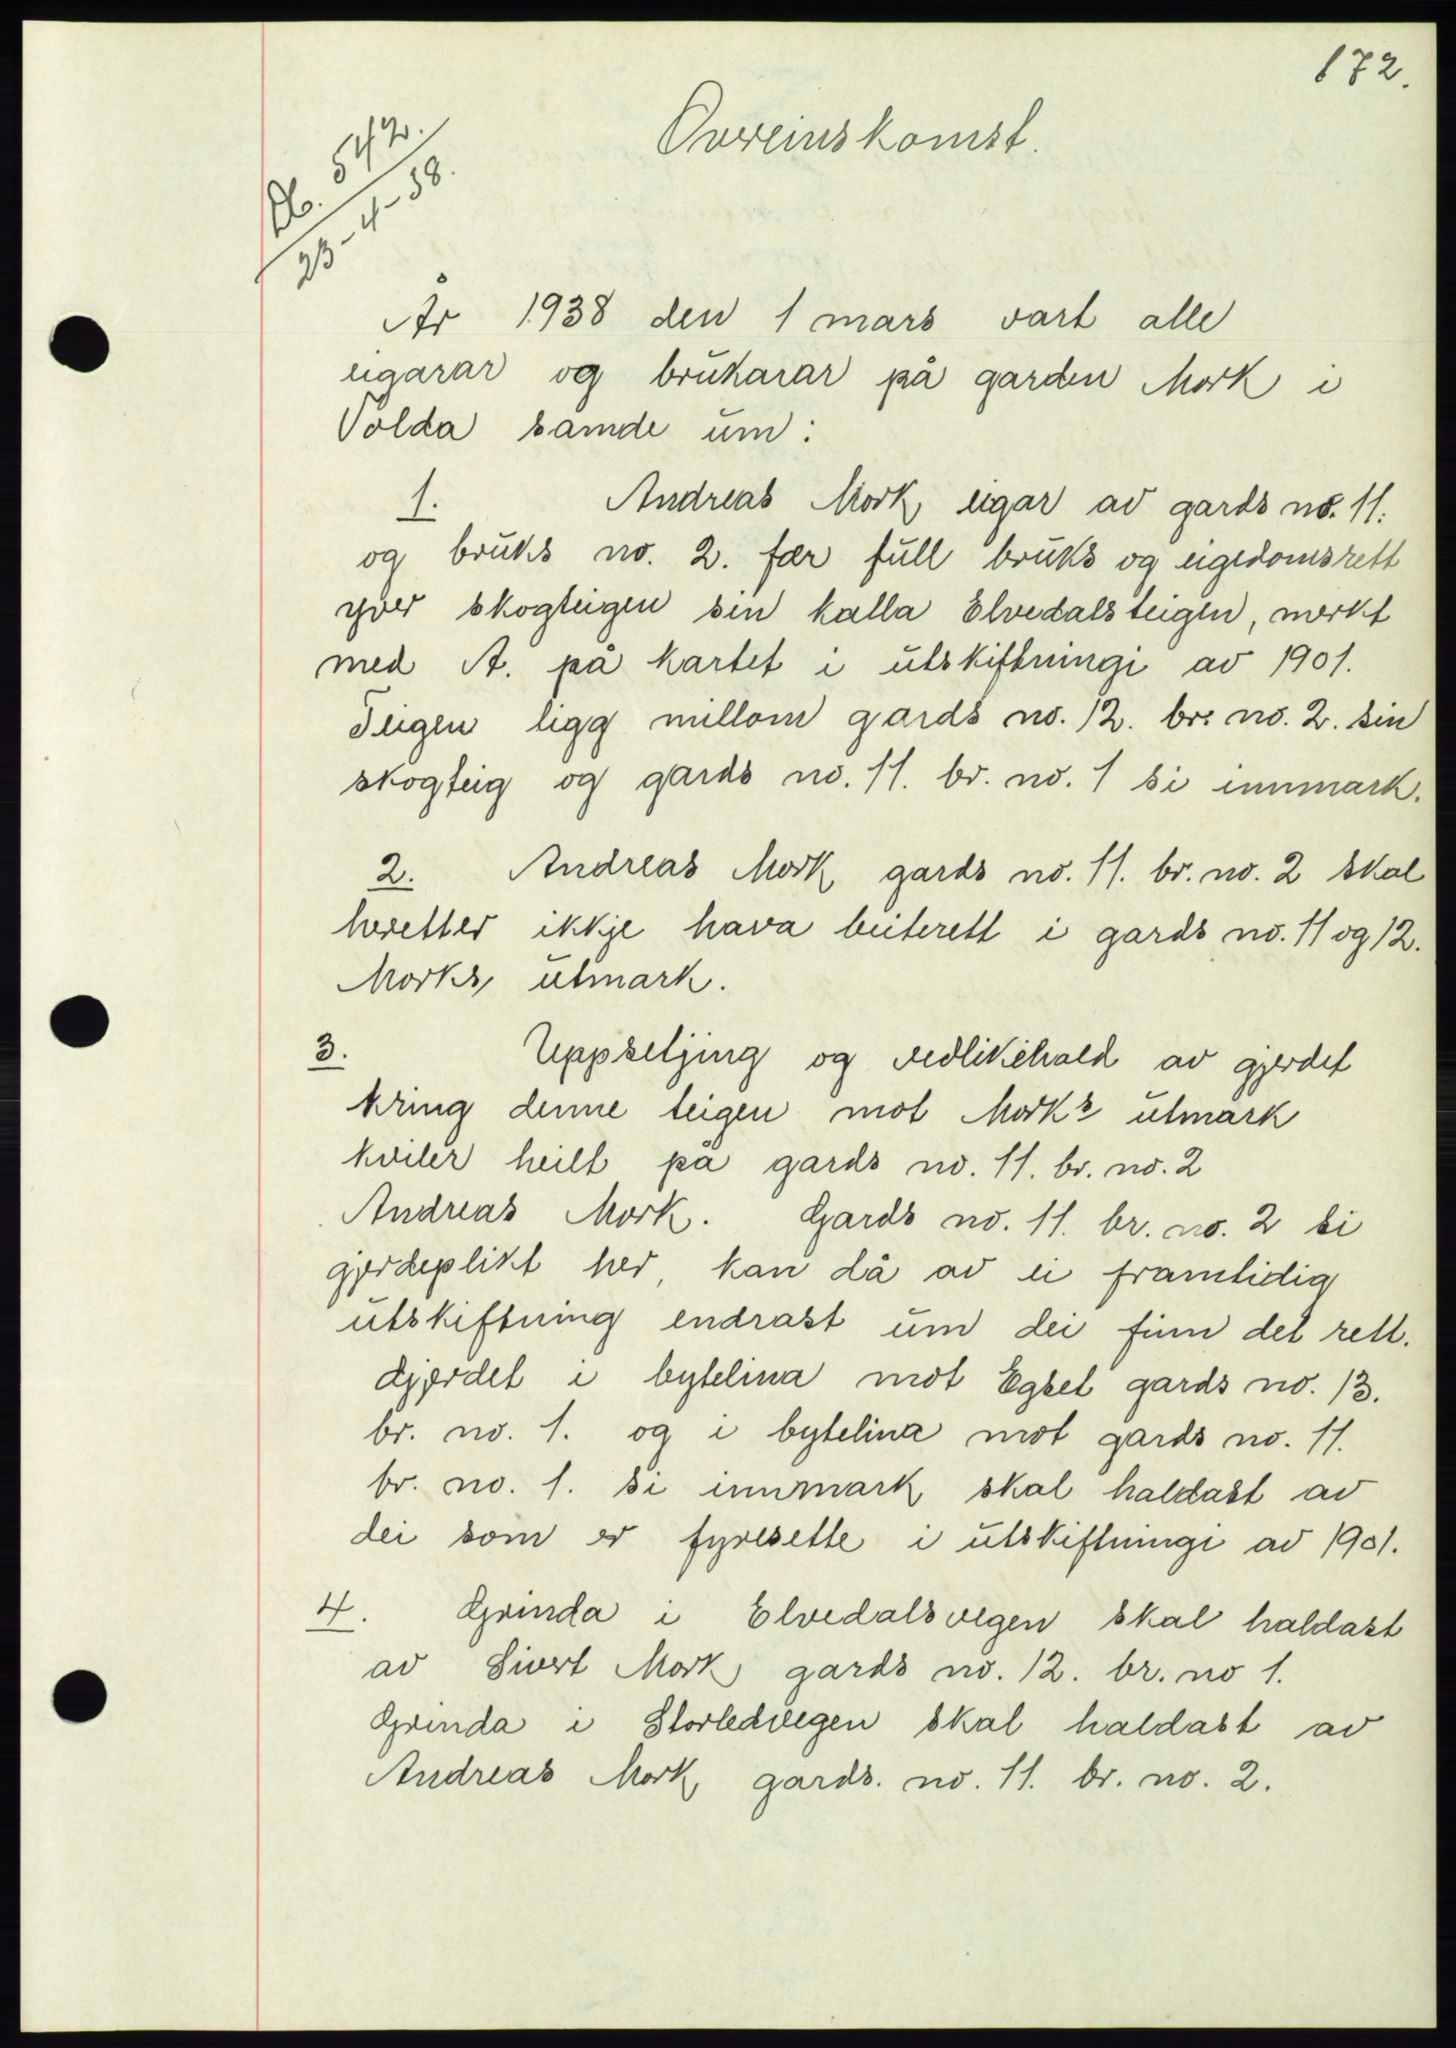 172.
Db. 542.
23-4-38.
Overeinskomst.
År 1938 den 1 mars vart alle
eigarar og brukarar på garden Mork i
Volda samde um:
1. Andreas Mork, eigar av gards no. 11.
og bruks no. 2. fær full bruks og eigedomsrett
yver skogteigen sin kalla Elvedalsteigen, merkt
med A. på kartet i utskiftningi av 1901.
Teigen ligg millom gards no. 12. br. no. 2. sin
skogteig og gards no. 11. br. no. 1 si innmark.
2. Andreas Mork gards no. 11. br. no. 2 skal
heretter ikkje hava beiterett i gards no. 11 og 12.
Morks utmark.
3. Uppseljing og vedlikehald av gjerdet
kring denne teigen mot Morks utmark
kviler heilt på gards no. 11. br. no. 2
Andreas Mork. Gards no. 11. br. no. 2 si
gjerdeplikt her, kan då av ei framtidig
utskiftning endrast um dei finn det rett.
Gjerdet i bytelina mot Egset gards no. 13.
br. no. 1. og i bytelina mot gards no. 11.
br. no. 1. si innmark skal haldast av
dei som er fyresette i utskiftningi av 1901.
4. Grinda i Elvedalsvegen skal haldast
av Sivert Mork gards no. 12. br. no 1.
Grinda i Storledvegen skal haldast av
Andreas Mork gards. no. 11. br. no. 2.